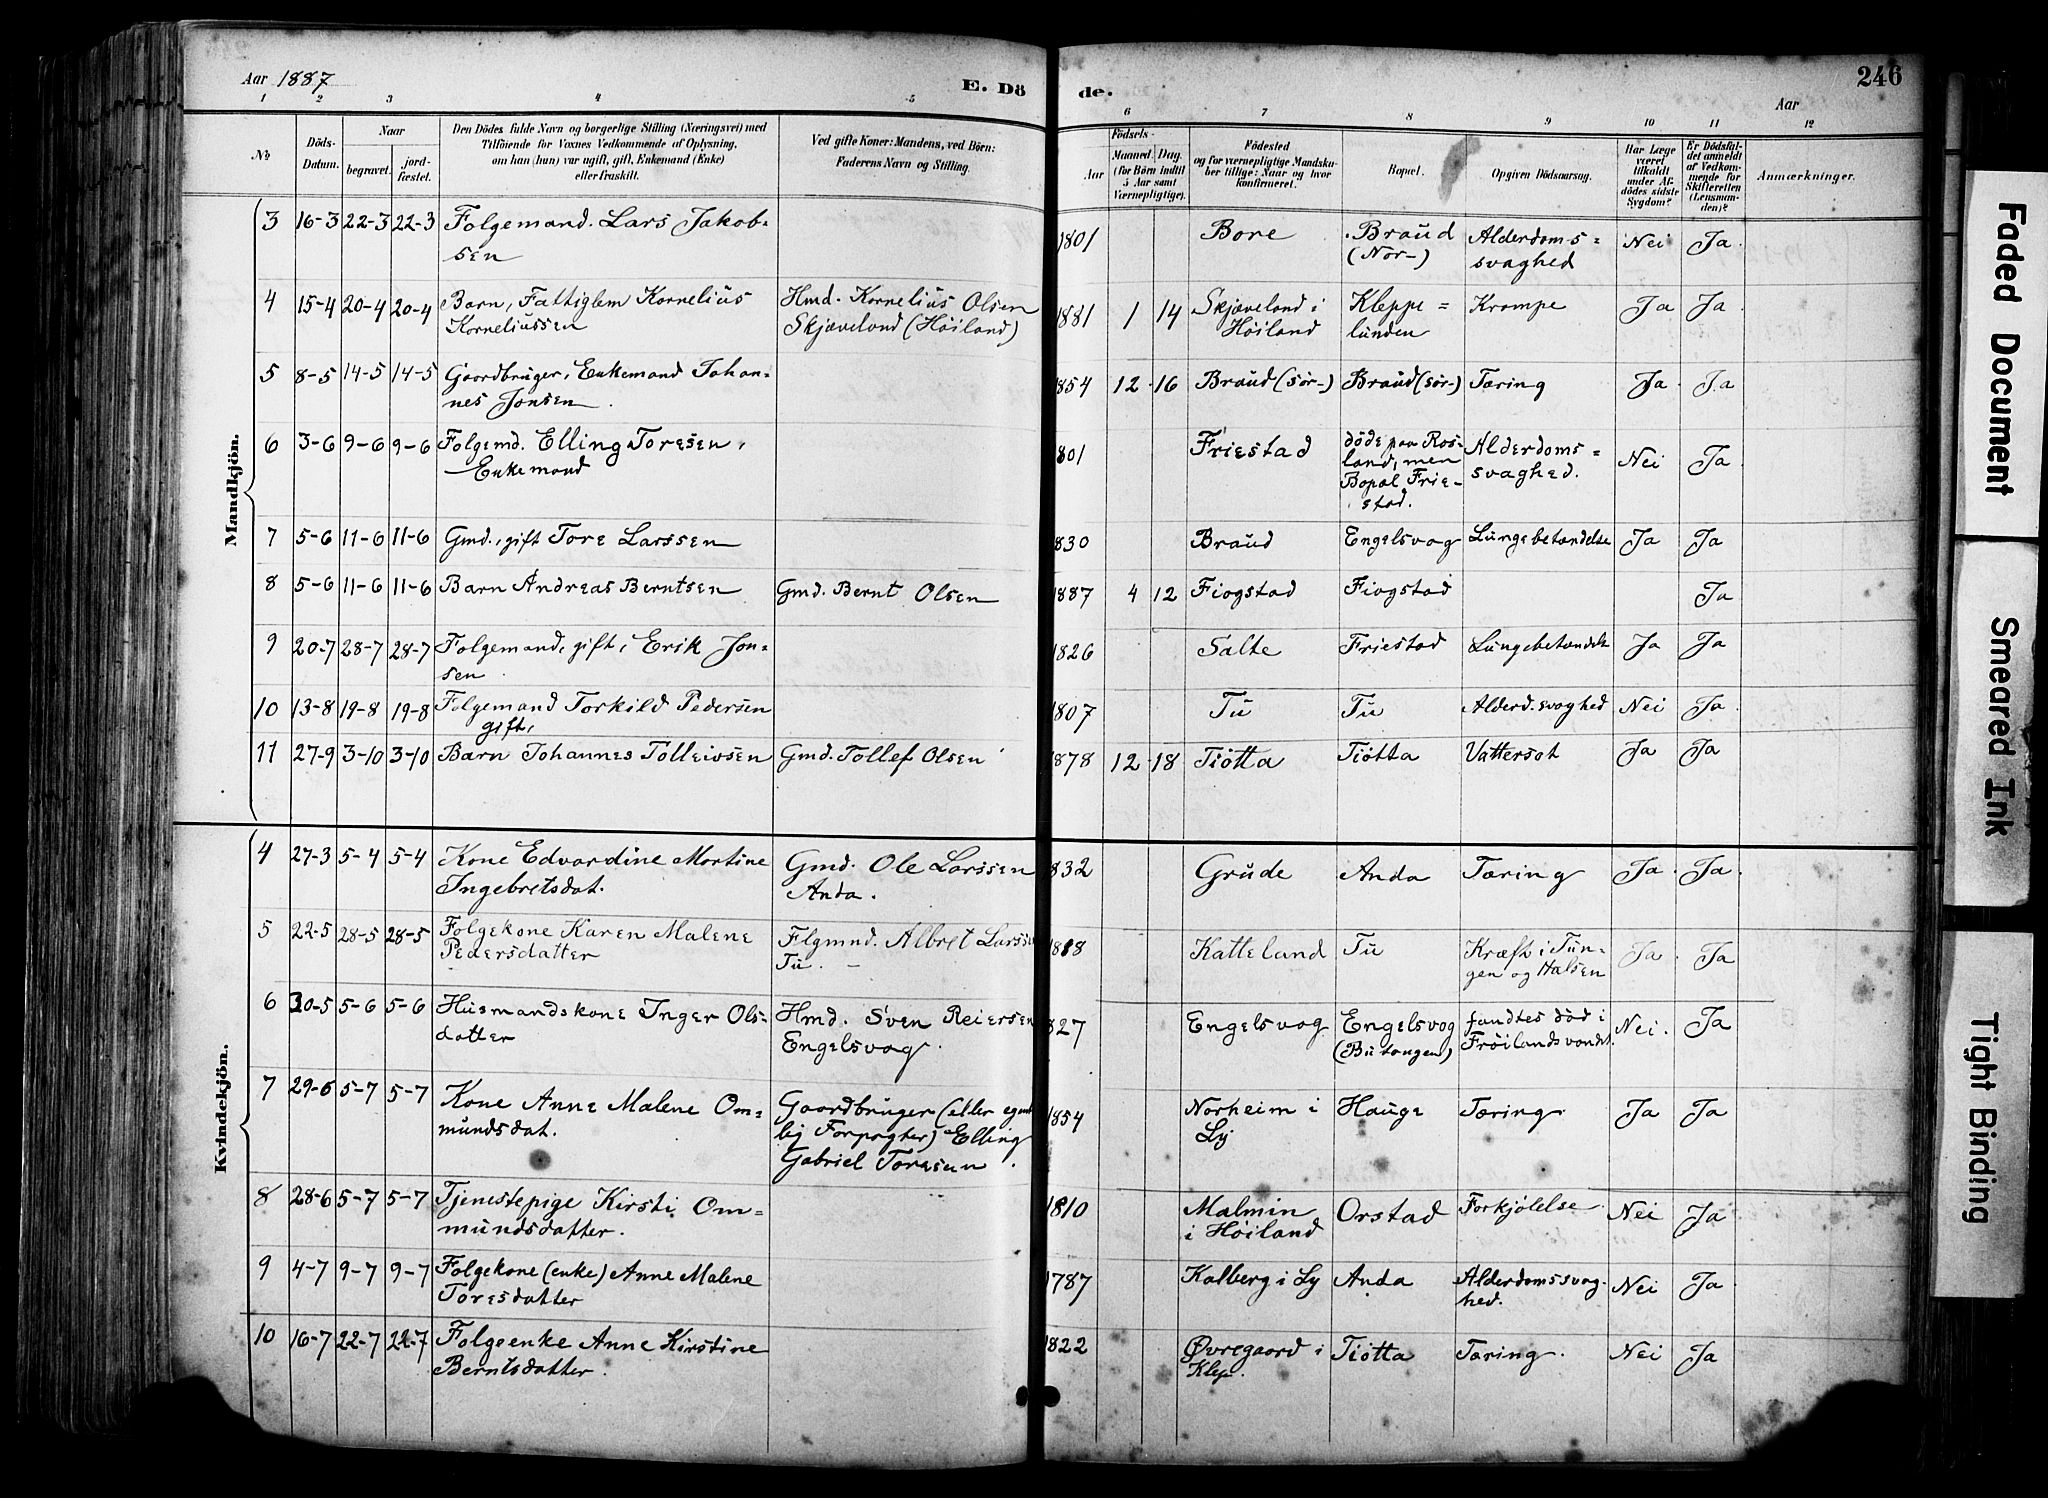 Aar 1887
E. Dö
de.
246
Aar
1 2 3 4 5 6 7 8 9 10 11 12
No
Döds-
Datum.
Naar
begravet.
jord-
fæstet.
Den Dödes fulde Navn og borgerlige Stilling (Næringsvei) med
Tilföiende for Voxnes Vedkommende af Oplysning,
om han (hun) var ugift, gift, Enkemand (Enke)
eller fraskilt.
Ved gifte Koner: Mandens, ved Börn:
Faderens Navn og Stilling.
Födsels-
Aar
Maaned. Dag.
(for Börn indtil
5 Aar samt
Værnepligtige).
Födested
og for værnepligtige Mandsku-
ber tillige: Naar og hvor
konfirmeret.
Bopæl.
Opgiven Dödsaarsag.
Har Læge
været
tilkaldt
under Af-
dödes sidste
Sygdom?
Er Dödsfal-
det anmeldt
af Vedkom-
mende for
Skifteretten
(Lensman-
den)?
Anmærkninger.
Mandkjön.
3 16-3 22-3 22-3 Folgemand. Lars Jakob-
sen
1801 Bore Braud
(Nor-) Alderdoms=
svaghed Nei Ja
4 15-4 20-4 20-4 Barn, Fattiglem Kornelius
Korneliussen Hmd. Kornelius Olsen
Skjæveland (Høiland) 1881 1 14 Skjæveland i
Høiland Kleppe=
lunden Krampe Ja Ja
5 8-5 14-5 14-5 Gaardbruger, Enkemand Johan-
nes Jonsen. 1854 12 16 Braud (sør-) Braud (sør-) Tæring Ja Ja
6 3-6 9-6 9-6 Folgemd. Elling Toresen,
Enkemand 801 Friestad døde paa Ros-
land, men
Bopæl Frie-
stad. Alderdoms=
svaghed. Nei Ja
7 5-6 11-6 11-6 Gmd., gift Tore Larssen 830 Braud Engelsvog Lungebetændelse Ja Ja
8 5-6 11-6 11-6 Barn Andreas Berntsen Gmd. Bernt Olsen 1887 4 12 Fiogstad Fiogstad Ja
9 20-7 28-7 28-7 Folgemand, gift, Erik Jon=
sen 1826 Salte Friestad Lungebetændelse Ja Ja
10 13-8 19-8 19-8 Folgemand Torkild Pedersen
gift, 1807 Tu Tu Alderd.svaghed Nei Ja
11 27-9 3-10 3-10 Barn Johannes Tolleivsen Gmd. Tollef Olsen 1878 12 18 Tiøtta Tiøtta Vattersot Ja Ja
Kvindekjön.
4 27-3 5-4 5-4 Kone Edvardine Martine
Ingebretsdat. Gmd. Ole Larssen
Anda. 832 Grude Anda Tæring Ja Ja
5 22-5 28-5 28-5 Folgekone Karen Malene
Pedersdatter Flgmnd. Albret Larssen
Tu. 1818 Katteland Tu Kræft i Tun-
gen og Halsen Ja Ja
6 30-5 5-6 5-6 Husmandskone Inger Ols-
datter Hmd. Sven Reiersen
Engelsvog. 827 Engelsvog Engelsvog
(Butangen) fandtes død i
Frøilandsvandet. Nei. Ja
7 29-6 5-7 5-7 Kone Anne Malene Om=
mundsdat. Gaardbruger (eller egent
lig Forpagter) Elling
Gabriel Toresen. 1854 Norheim i
Ly Hauge Tæring. Ja Ja
8 28-6 5-7 5-7 Tjenestepige Kirsti Om=
mundsdatter. 1810 Malmin
i Høiland Orstad Forkjølelse Nei Ja
9 4-7 9-7 9-7 Folgekone (enke) Anne Malene
Toresdatter 1787 Kalberg i Ly Anda Alderdomssvag-
hed. Nei Ja
10 16-7 22-7 22-7 Folgeenke Anne Kirstine
Berntsdatter. 1822 Øvregaard i
Klep. Tiøtta Tæring. Nei Ja
Faded Document
Smeared Ink
Tight Binding